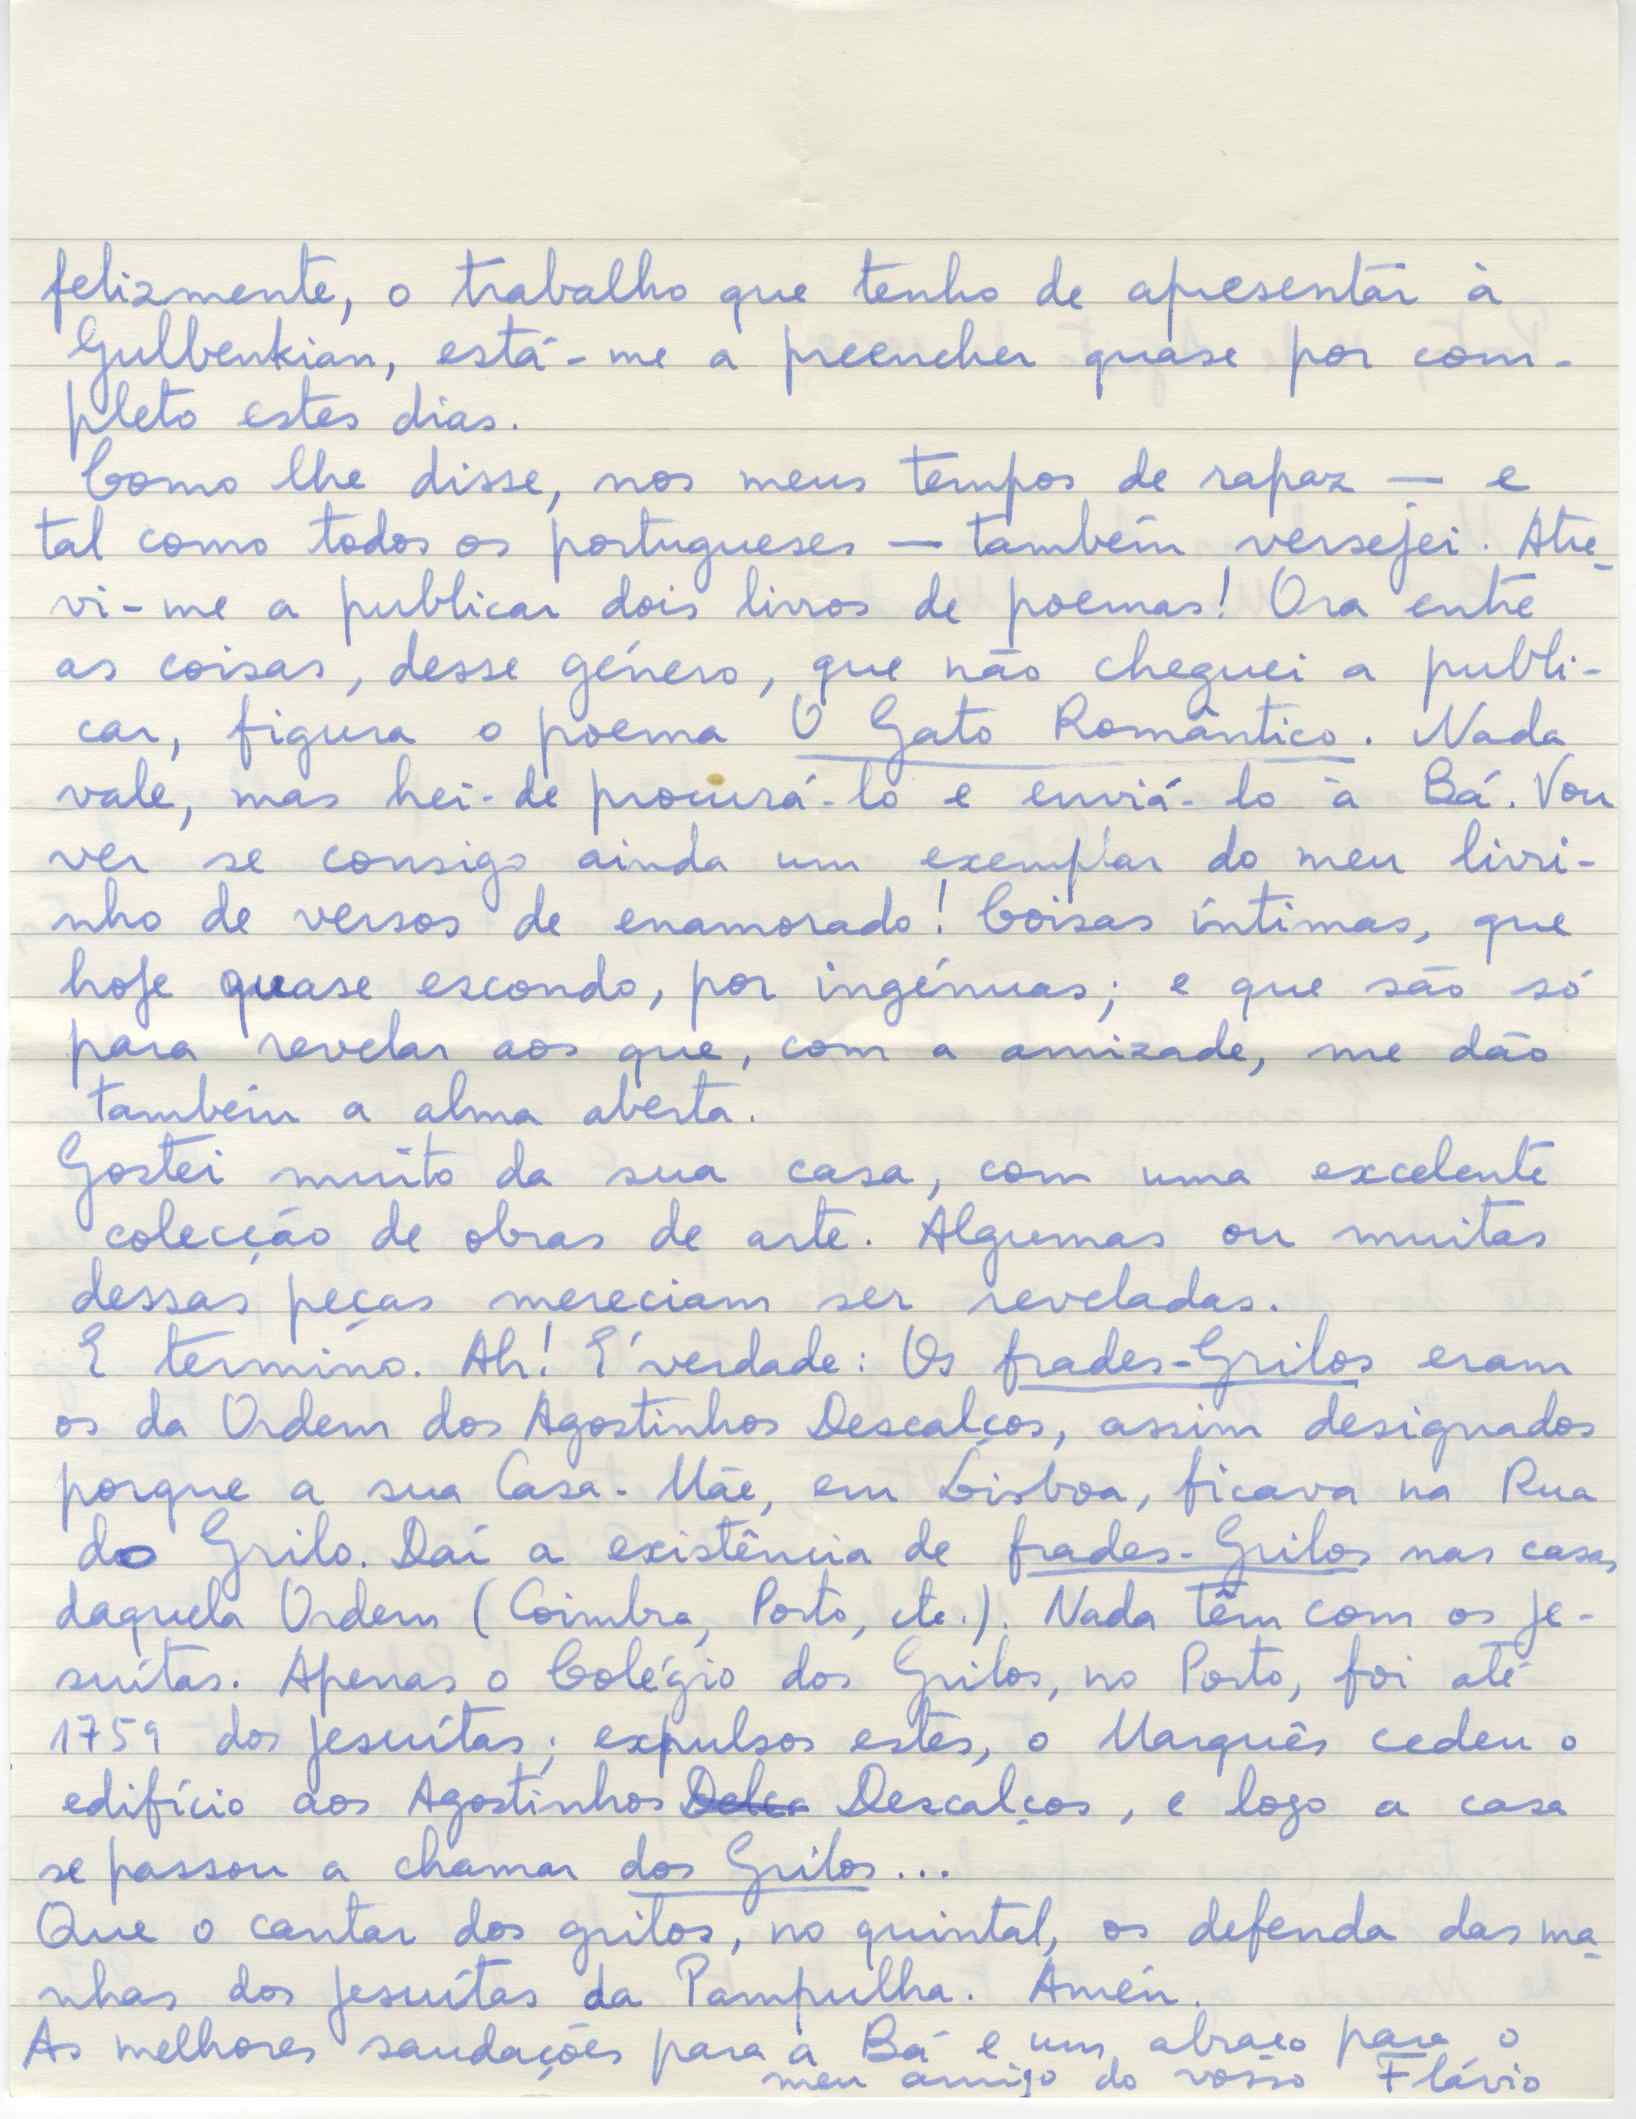 felizmente, o trabalho que tenho de apresentar à
Gulbenkian, está-me a preencher quase por com-
pleto estes dias.
Como lhe disse, nos meus tempos de rapaz — e
tal como todos os portugueses — também versejei. Atre-
vi-me a publicar dois livros de poemas! Ora entre
as coisas, desse género, que não cheguei a publi-
car, figura o poema O Gato Romântico. Nada
vale, mas hei-de procurá-lo e enviá-lo à Bá. Vou
ver se consigo ainda um exemplar do meu livri-
nho de versos de enamorado! Coisas íntimas, que
hoje quase escondo, por ingénuas; e que são só
para revelar aos que, com a amizade, me dão
também a alma aberta.
Gostei muito da sua casa, com uma excelente
colecção de obras de arte. Algumas ou muitas
dessas peças mereciam ser reveladas.
E termino. Ah! É verdade: Os frades-Grilos eram
os da Ordem dos Agostinhos Descalços, assim designados
porque a sua Casa-Mãe, em Lisboa, ficava na Rua
do Grilo. Daí a existência de frades-Grilos nas casas
daquela Ordem (Coimbra, Porto, etc.). Nada têm com os je-
suítas. Apenas o Colégio dos Grilos, no Porto, foi até
1759 dos jesuítas; expulsos estes, o Marquês cedeu o
edifício aos Agostinhos Descalços, e logo a casa
se passou a chamar dos Grilos...
Que o cantar dos grilos, no quintal, os defenda das ma-
nhas dos jesuítas da Pampulha. Amén.
As melhores saudações para a Bá e um abraço para o
meu amigo do vosso Flávio